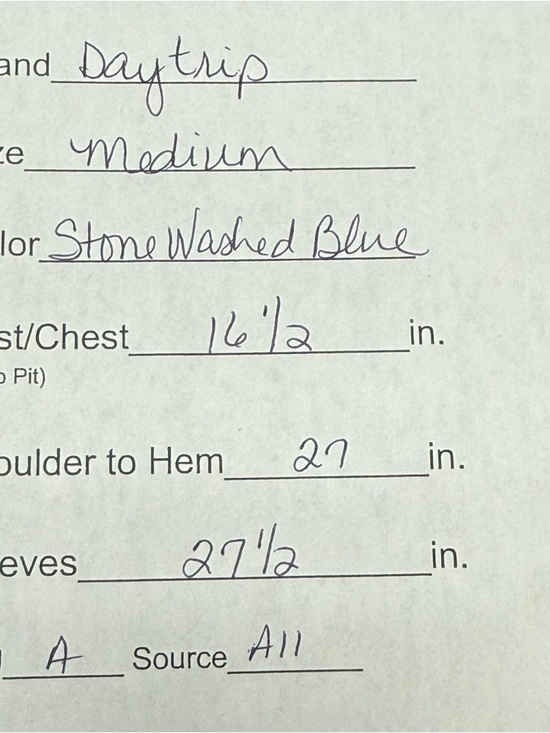 and Daytrip
ze Medium
lor Stone Washed Blue
st/Chest 16 1/2 in.
o Pit)
oulder to Hem 27 in.
eeves 27 1/2 in.
A Source All